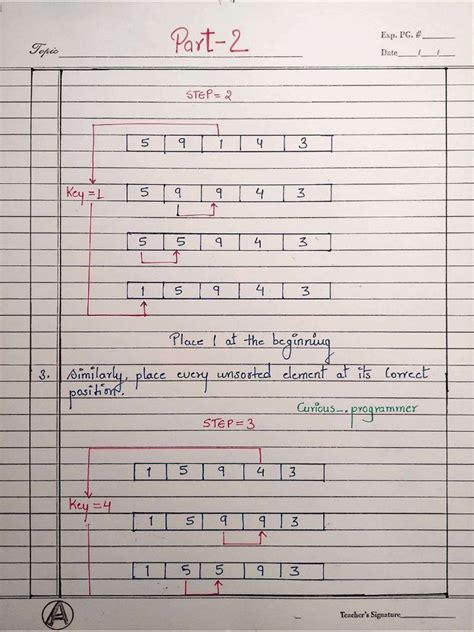 Part-2
Exp. PG. #
Topic
Date / /
STEP = 2
5 9 1 4 3
Key = 1 5 9 9 4 3
5 5 9 4 3
1 5 9 4 3
Place 1 at the beginning
3. Similarly, place every unsorted element at its correct
position.
Curious_.programmer
STEP = 3
1 5 9 4 3
Key = 4
1 5 9 9 3
1 5 5 9 3
A
Teacher's Signature